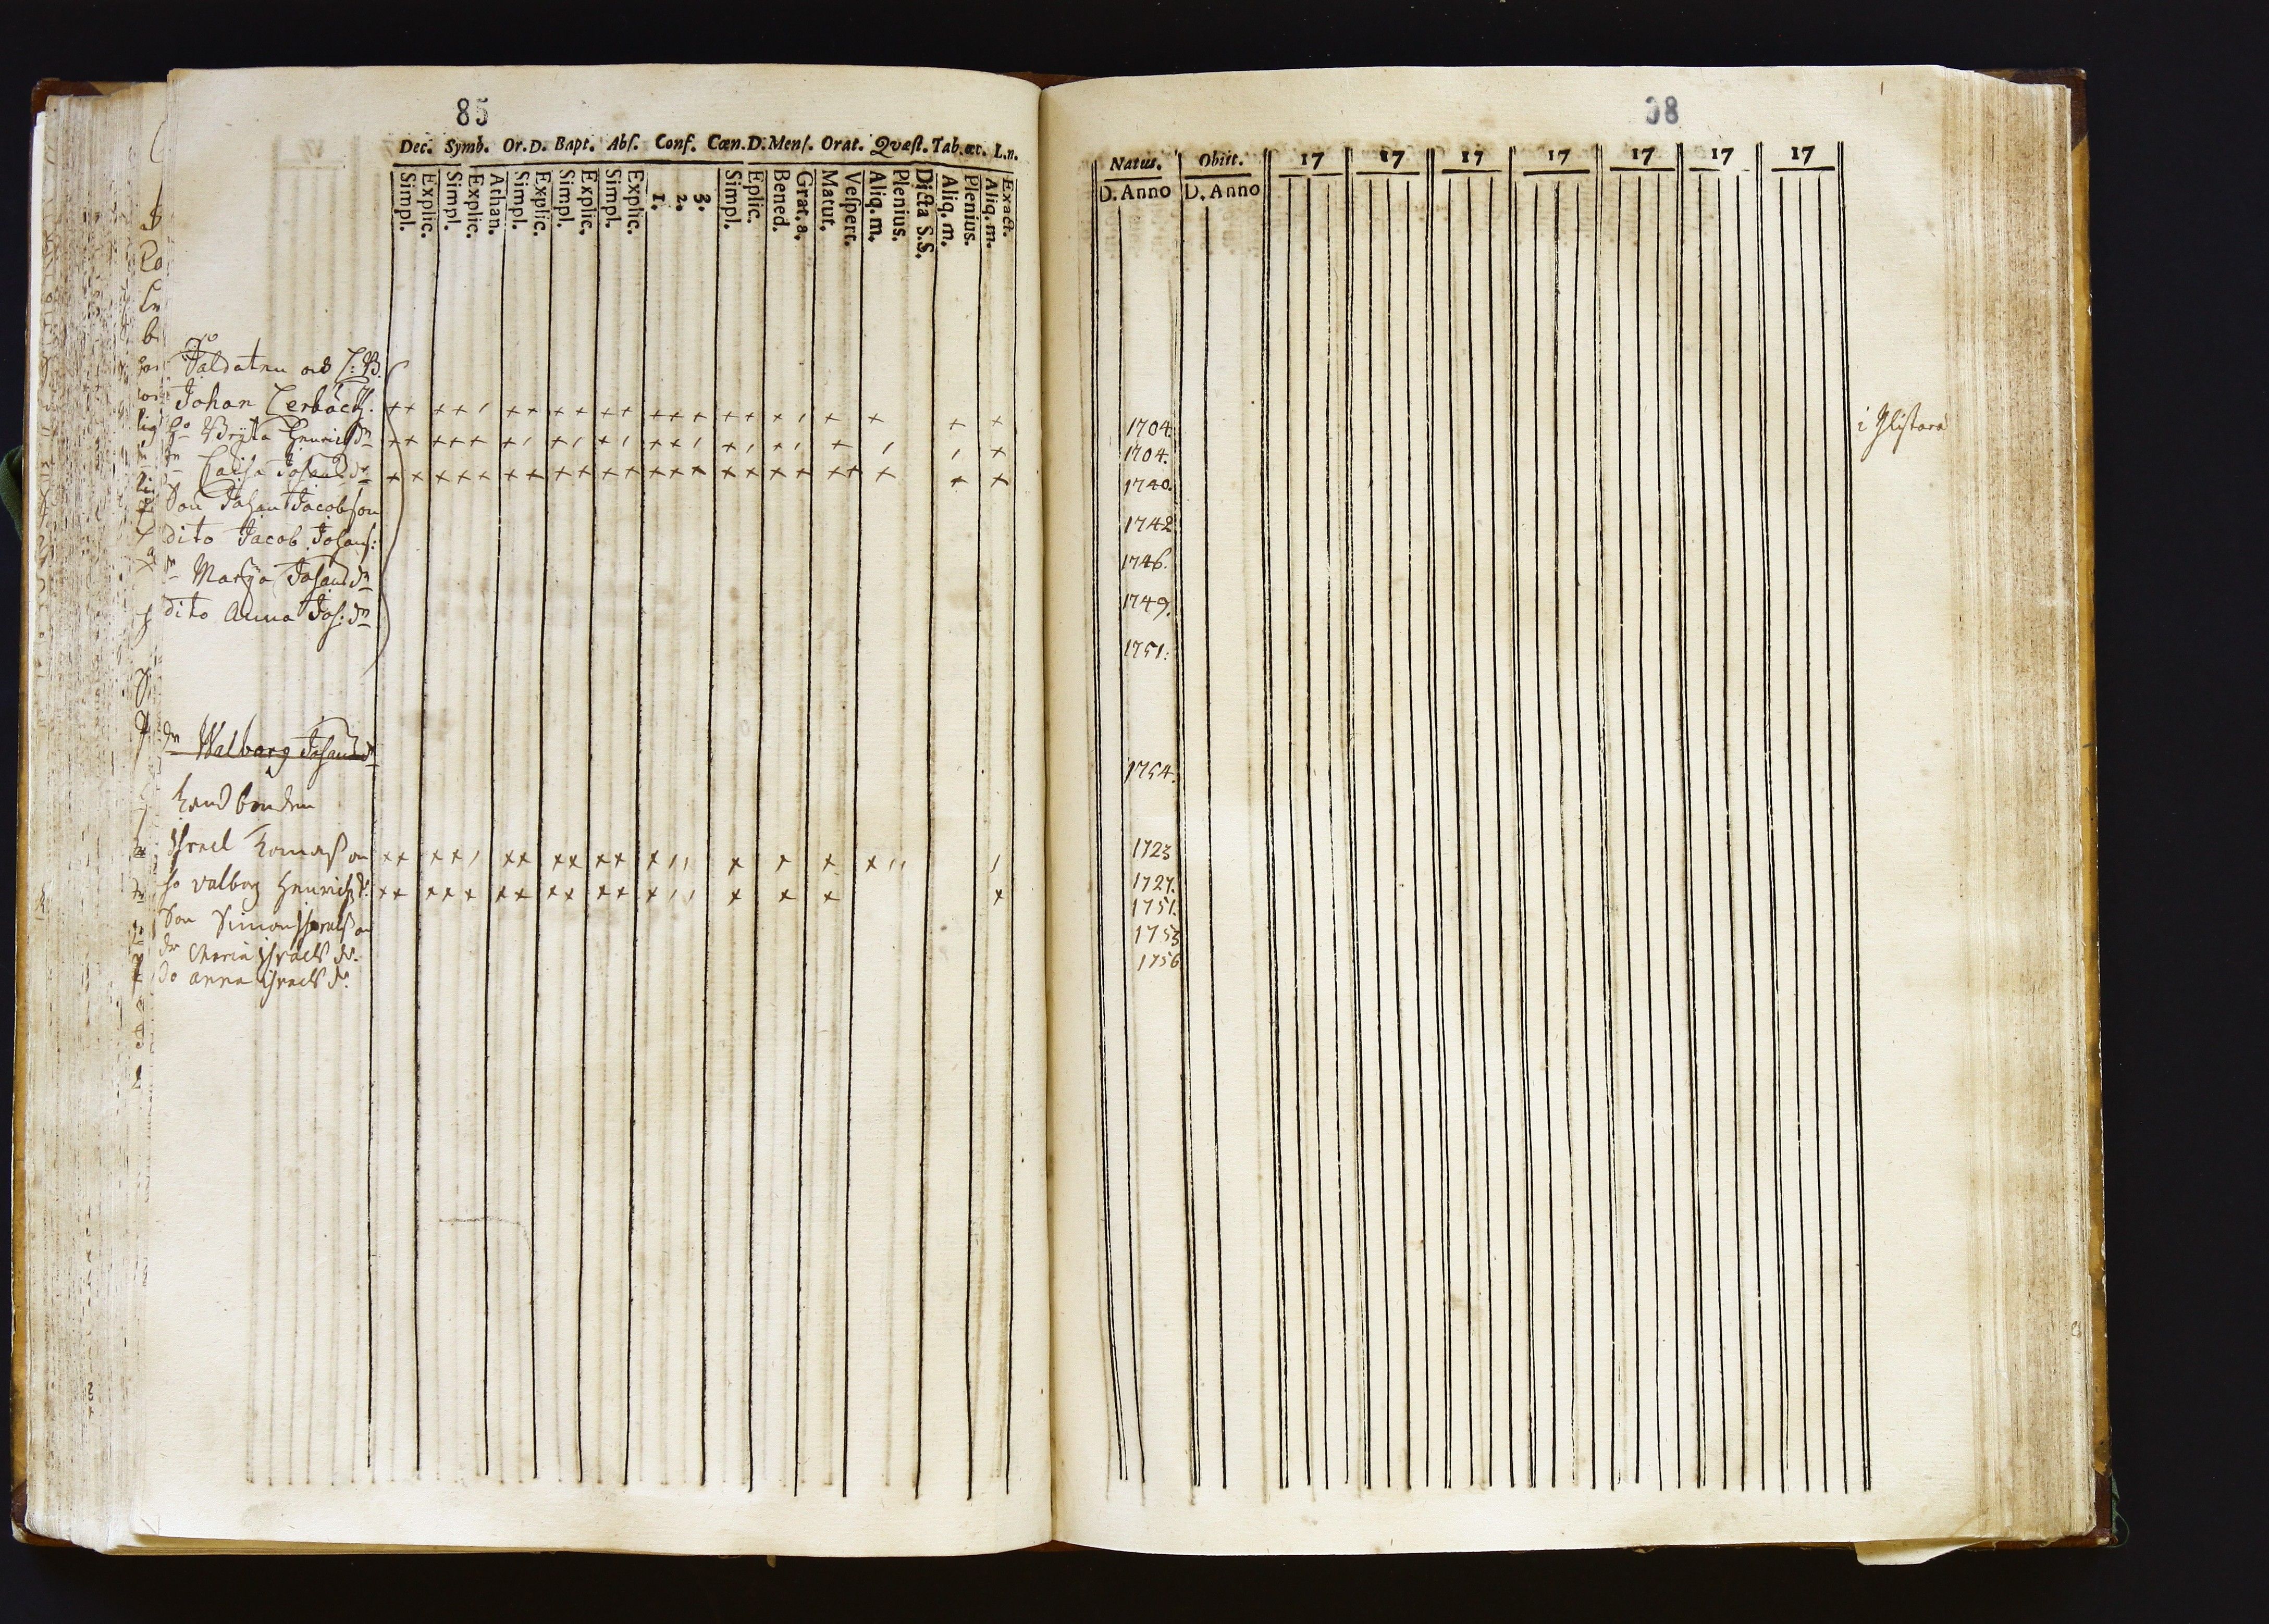 85
Dec. Symb. Or. D. Bapt. Abs. Conf. Cœn. D. Mens. Orat. Qvæst. Tab. œc. L.n.
Simpl. Explic. Simpl. Explic. Athan. Simpl. Explic. Simpl. Explic. Simpl. Explic. 1. 2. 3. Simpl. Eplic. Bened. Grat. a. Matut. Vespert. Aliq. m. Plenius. Dicta S.S. Aliq. m. Plenius. Aliq. m. Exact.
Johan Lerbäck.
ho Brÿta Henrichsdr
dr Caisa Johansdr
Son Johan Jacobson
dito Jacob Johans:
dr Marÿa Johansdr
dito Anna Joh: dr
dr Walborg Johansdr
Landbonden
Israel Tomasson
ho valborg Henrichsdr.
Son Simon Israelsson
dr Maria Israelsdr.
do anna Israelsdr.
38
Natus. Obiit. 17 17 17 17 17 17 17
D. Anno D. Anno
1704.
1704.
1740.
1742
1746.
1749.
1751:
1754.
1723
1727.
1751.
1753
1756